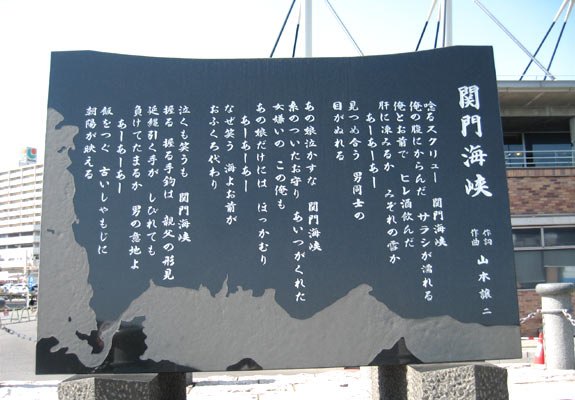 関門海峡
作詞
作曲 山本譲二
唸るスクリュー 関門海峡
俺の腹にからんだ サラシが濡れる
俺とお前で ヒレ酒飲んだ
肝に凍みるか みぞれの雪か
あーあーあー
見つめ合う 男同士の
目がぬれる
あの娘泣かすな 関門海峡
糸のついたお守り あいつがくれた
女嫌いの この俺も
あーあーあー
あの娘だけには ほっかむり
なぜ笑う 海よお前が
おふくろ代わり
泣くも笑うも 関門海峡
握る 握る手鈎は 親父の形見
延縄引く手が しびれても
負けてたまるか 男の意地よ
あーあーあー
飯をつぐ 古いしゃもじに
朝陽が映える